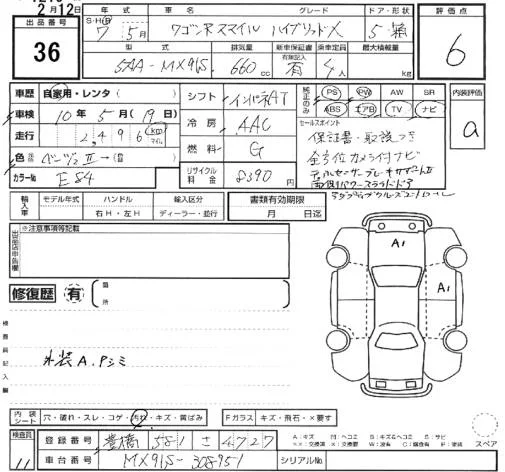 2月12日
出品番号 36
年式 S・H・R 7年 5月
車名 ワゴンRスマイル ハイブリッドX
グレード
ドア・形状 5・箱
型式 5AA-MX91S
排気量 660cc
新車保証書 有無記入 有
乗車定員 4人
最大積載量 kg
評価点 6
車歴 自家用・レンタ
車検 10年5月(19日)
走行 2,496 km マイル
色 ベージュⅡ→( )
カラーNo E84
シフト インパネAT
冷房 AAC
燃料 G
リサイクル料金 8390円
純正品のみ PS PW AW SR
ABS エアB TV ナビ
内装評価 a
セールスポイント
保証書・取説つき
全方位カメラ付ナビ
デュアルセンサーブレーキサポートⅡ
両側パワースライドドア
輸入車 モデル年式 ハンドル 右H・左H 輸入区分 ディーラー・並行
書類有効期限 月 日迄
出品店申告欄 ※注意事項等記載
修復歴 有 箇所
検査員記入欄
外装A.Pシミ
A1
A1
内装シート 穴・破れ・スレ・コゲ・汚れ・キズ・黄ばみ
Fガラス キズ・飛石・×要す
検査員 11
登録番号 豊橋 581 さ 4727
車台番号 MX91S-308951
シリアルNo
A:キズ M:ヘコミ B:キズ&ヘコミ S:サビ
××:交換済 W:波有 C:腐食有 X:交換 P:塗装
スペア